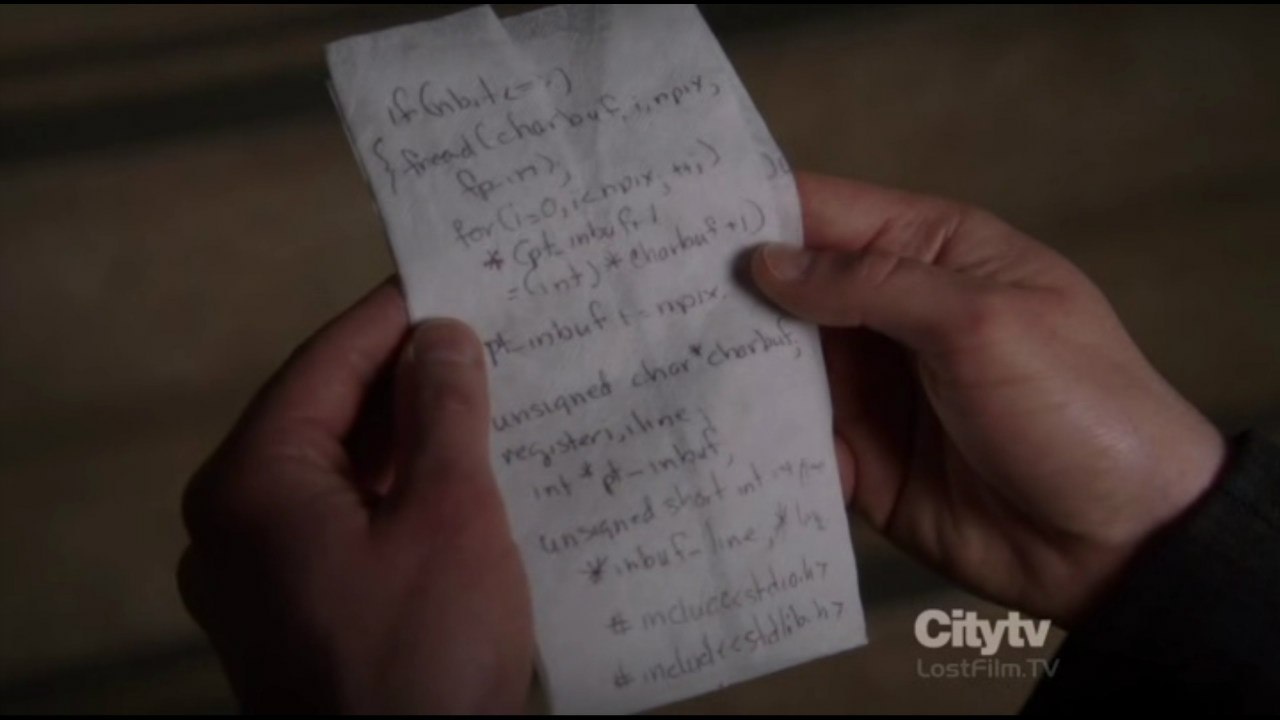 if(nbit<=
{ fread(charbuf, 1, npix,
fp-in);
for(i=0, i<npix, ++,)
*(pt-inbuf+1
=(int)*charbuf+1)
pt-inbuf+=npix.
unsigned char*charbuf;
register i, iline;
int *pt-inbuf,
unsigned short int
*inbuf-line, *
#include<stdio.h>
#include<stdlib.h>
Citytv
LostFilm.TV